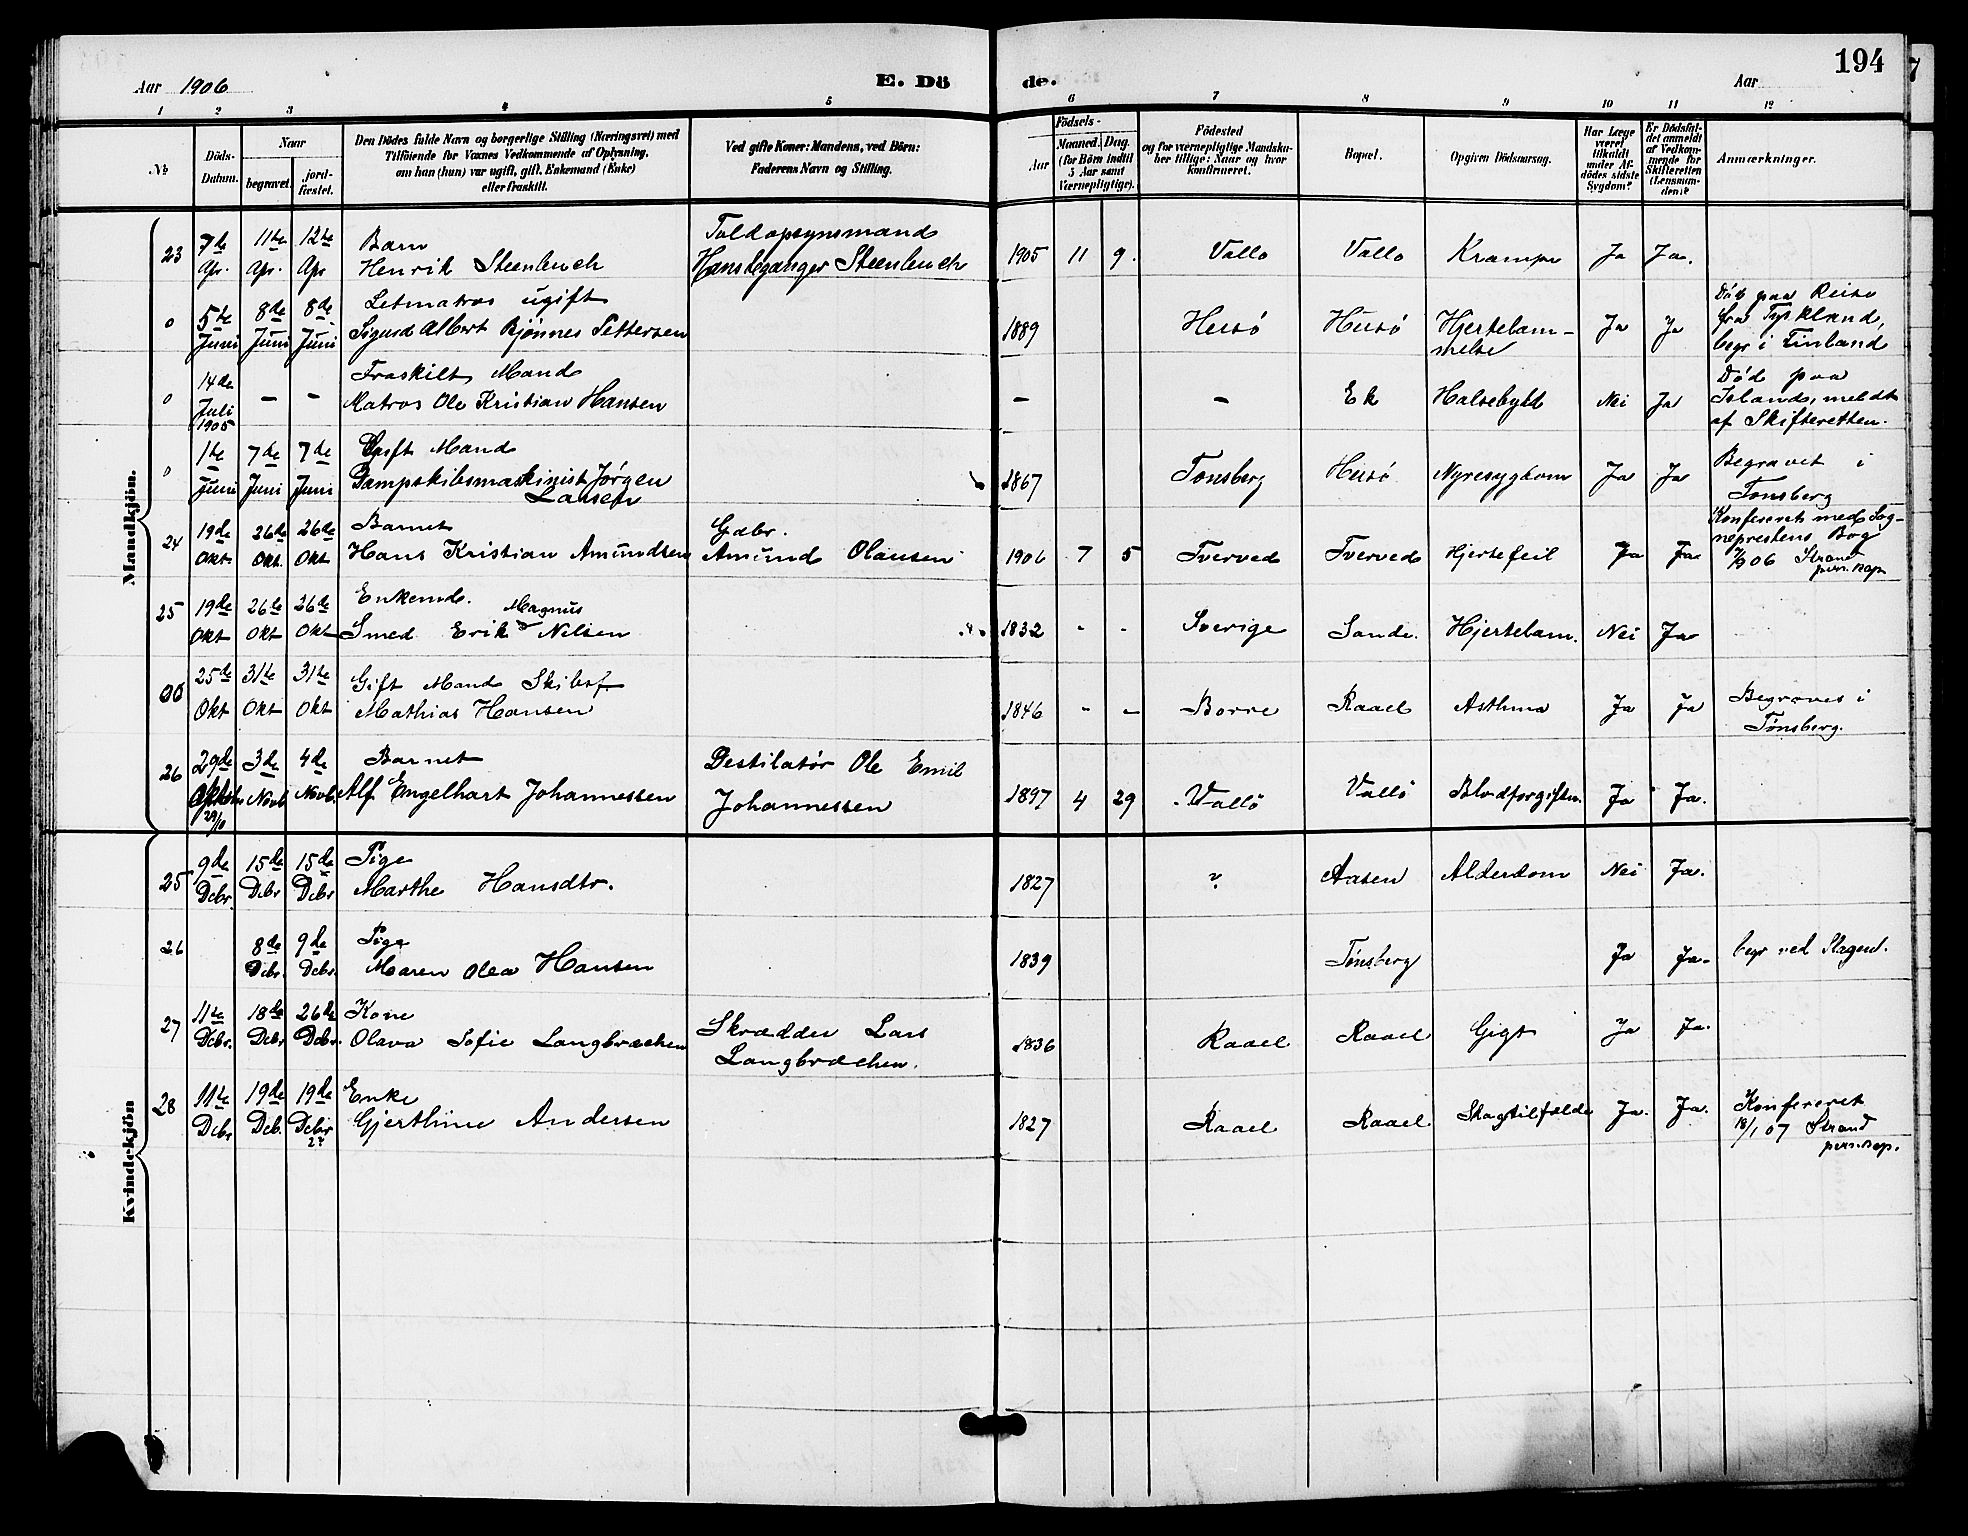 194
Aar 1906
E. Dö
de.
Aar
1 2 3 4 5 6 7 8 9 10 11 12
No
Döds-
Datum.
Naar
begravet.
jord-
fæstet.
Den Dödes fulde Navn og borgerlige Stilling (Næringsvei) med
Tilföiende for Voxnes Vedkommende af Oplysning,
om han (hun) var ugift, gift, Enkemand (Enke)
eller fraskilt.
Ved gifte Koner: Mandens, ved Börn:
Faderens Navn og Stilling.
Födsels-
Aar
Maaned. Dag.
(for Börn indtil
5 Aar samt
Værnepligtige).
Födested
og for værnepligtige Mandska-
ber tillige: Naar og hvor
konfirmeret.
Bopæl.
Opgiven Dödsaarsag.
Har Læge
været
tilkaldt
under Af-
dödes sidste
Sygdom?
Er Dödsfal-
det anmeldt
af Vedkom-
mende for
Skifteretten
(Lensman-
den)?
Anmærkninger.
Mandkjön.
23 7de Apr. 11te Apr. 12te Apr
Barn
Henrik Steenbuch
Toldopsynsmand
Hansteganger Steenbuch
1905 11 9. Vallo Vallo Krampe Ja Ja.
0 5te Juni 8de Juni 8de Juni
Letmatros ugift
Sigurd Albert Bjönnes Pettersen
1889 Husö Husö Hjertelam-
melse Ja Ja
Död paa Reise
fra Tyskland,
begr i Finland
0 14de Juli 1905 - -
Fraskilt Mand
Matros Ole Kristian Hansen
- - Ek Halsebyld Nei Ja
Død paa
Island, meldt
af Skifteretten.
0 1te Juni 7de Juni 7de Juni
Gift Mand
Dampskibsmaskinist Jørgen
Larsen
1867 Tønsberg Husö Nyresygdom Ja Ja
Begravet i
Tønsberg
24 19de Okt. 26de Okt. 26de Okt
Barnet
Hans Kristian Amundsen
Gdbr.
Amund Olausen
1906 7 5 Tverved Tverved Hjertefeil Ja Ja
Konfereret med Sog-
neprestens Bog
06 Strand
pers. kap.
25 19de Okt 26de Okt 26de Okt
Enkemd.
Magnus
Smed Erik Nilsen
1832 - - Sverige Sande. Hjertelam. Nei Ja
25de Okt 31te Okt 31te Okt
Gift Mand Skibsf.
Mathias Hansen
1846 - - Borre Raael Asthma Ja Ja
Begraves i
Tønsberg.
26 29de 29/10 3de Novb. 4de Novb.
Barnet
Alf Engelhart Johannessen
Destilatør Ole Emil
Johannessen
1897 4 29 Vallö Vallö Blodforgiftn. Ja Ja.
Kvindekjön
25 9de Dcbr. 15de Dcbr 15de Dcbr
Pige
Marthe Hansdtr.
1827 ? Aasen Alderdom Nei Ja.
26 8de Dcbr. 9de Dcbr.
Pige
Maren Olea Hansen
1839 Tønsberg Ja Ja.
begr ved Slagen.
27 11te Dcbr. 18de Dcbr 26de Dcbr.
Kone
Olava Sofie Langbrächen
Skrædder Lars
Langbrächen.
1836 Raael Raael Gigt Ja Ja.
28 11te Dcbr 19de Dcb. 19de Dcbr
Enke
Gjerthine Andersen
1827 Raael Raael Slagtilfælde Ja. Ja.
Konfereret
18/1 07 Strand
pers. kap.